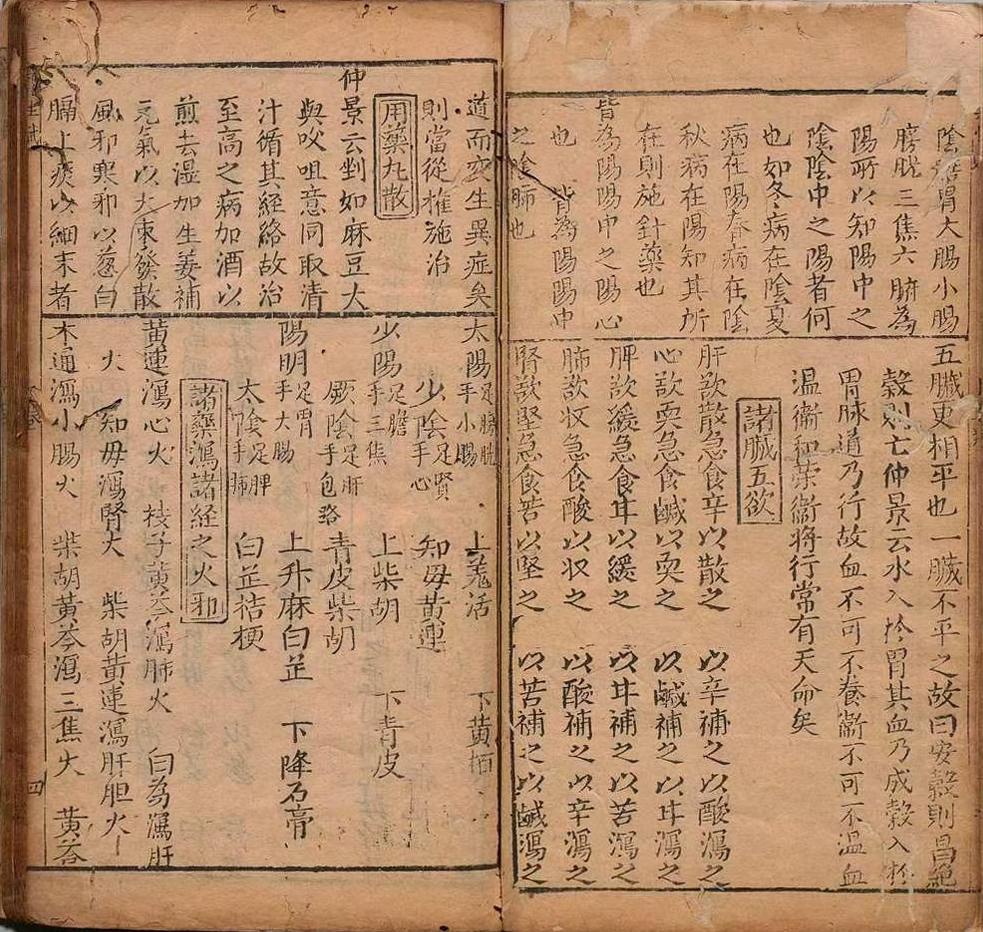 陰膽胃大腸小腸
膀胱三焦六腑為
陽所以知陽中之
陰陰中之陽者何
也如冬病在陰夏
病在陽春病在陰
秋病在陽知其所
在則施針藥也
皆為陽陽中之陽心
也 皆為陽陽中
之陰肺也
五臟更相平也一臟不平之故曰安穀則昌絕
穀則亡仲景云水入於胃其血乃成穀入於
胃脉道乃行故血不可不養衞不可不溫血
溫衞和荣衞將行常有天命矣
諸臟五欲
肝欲散急食辛以散之 以辛補之以酸瀉之
心欲耎急食鹹以耎之 以鹹補之以甘瀉之
脾欲緩急食甘以緩之 以甘補之以苦瀉之
肺欲收急食酸以收之 以酸補之以辛瀉之
腎欲堅急食苦以堅之 以苦補之以鹹瀉之
道而变生異症矣
則當從權施治
用藥丸散
仲景云剉如麻豆大
與㕮咀意同取清
汁循其経絡故治
至高之病加酒以
煎去湿加生姜補
元氣以大棗發散
風邪寒邪以葱白
膈上痰以細末者
太陽足膀胱手小腸 上羗活 下黄栢
少陰足腎手心 知母黄連
少陽足膽手三焦 上柴胡 下青皮
厥陰足肝手包络 青皮柴胡
陽明足胃手大腸 上升麻白芷 下降石膏
太陰足脾手肺 白芷桔梗
諸藥瀉諸経之火邪
黄連瀉心火 枝子黄芩瀉肺火 白芍瀉肝
火 知母瀉腎火 柴胡黄連瀉肝胆火
木通瀉小腸火 柴胡黄芩瀉三焦火 黄芩
四